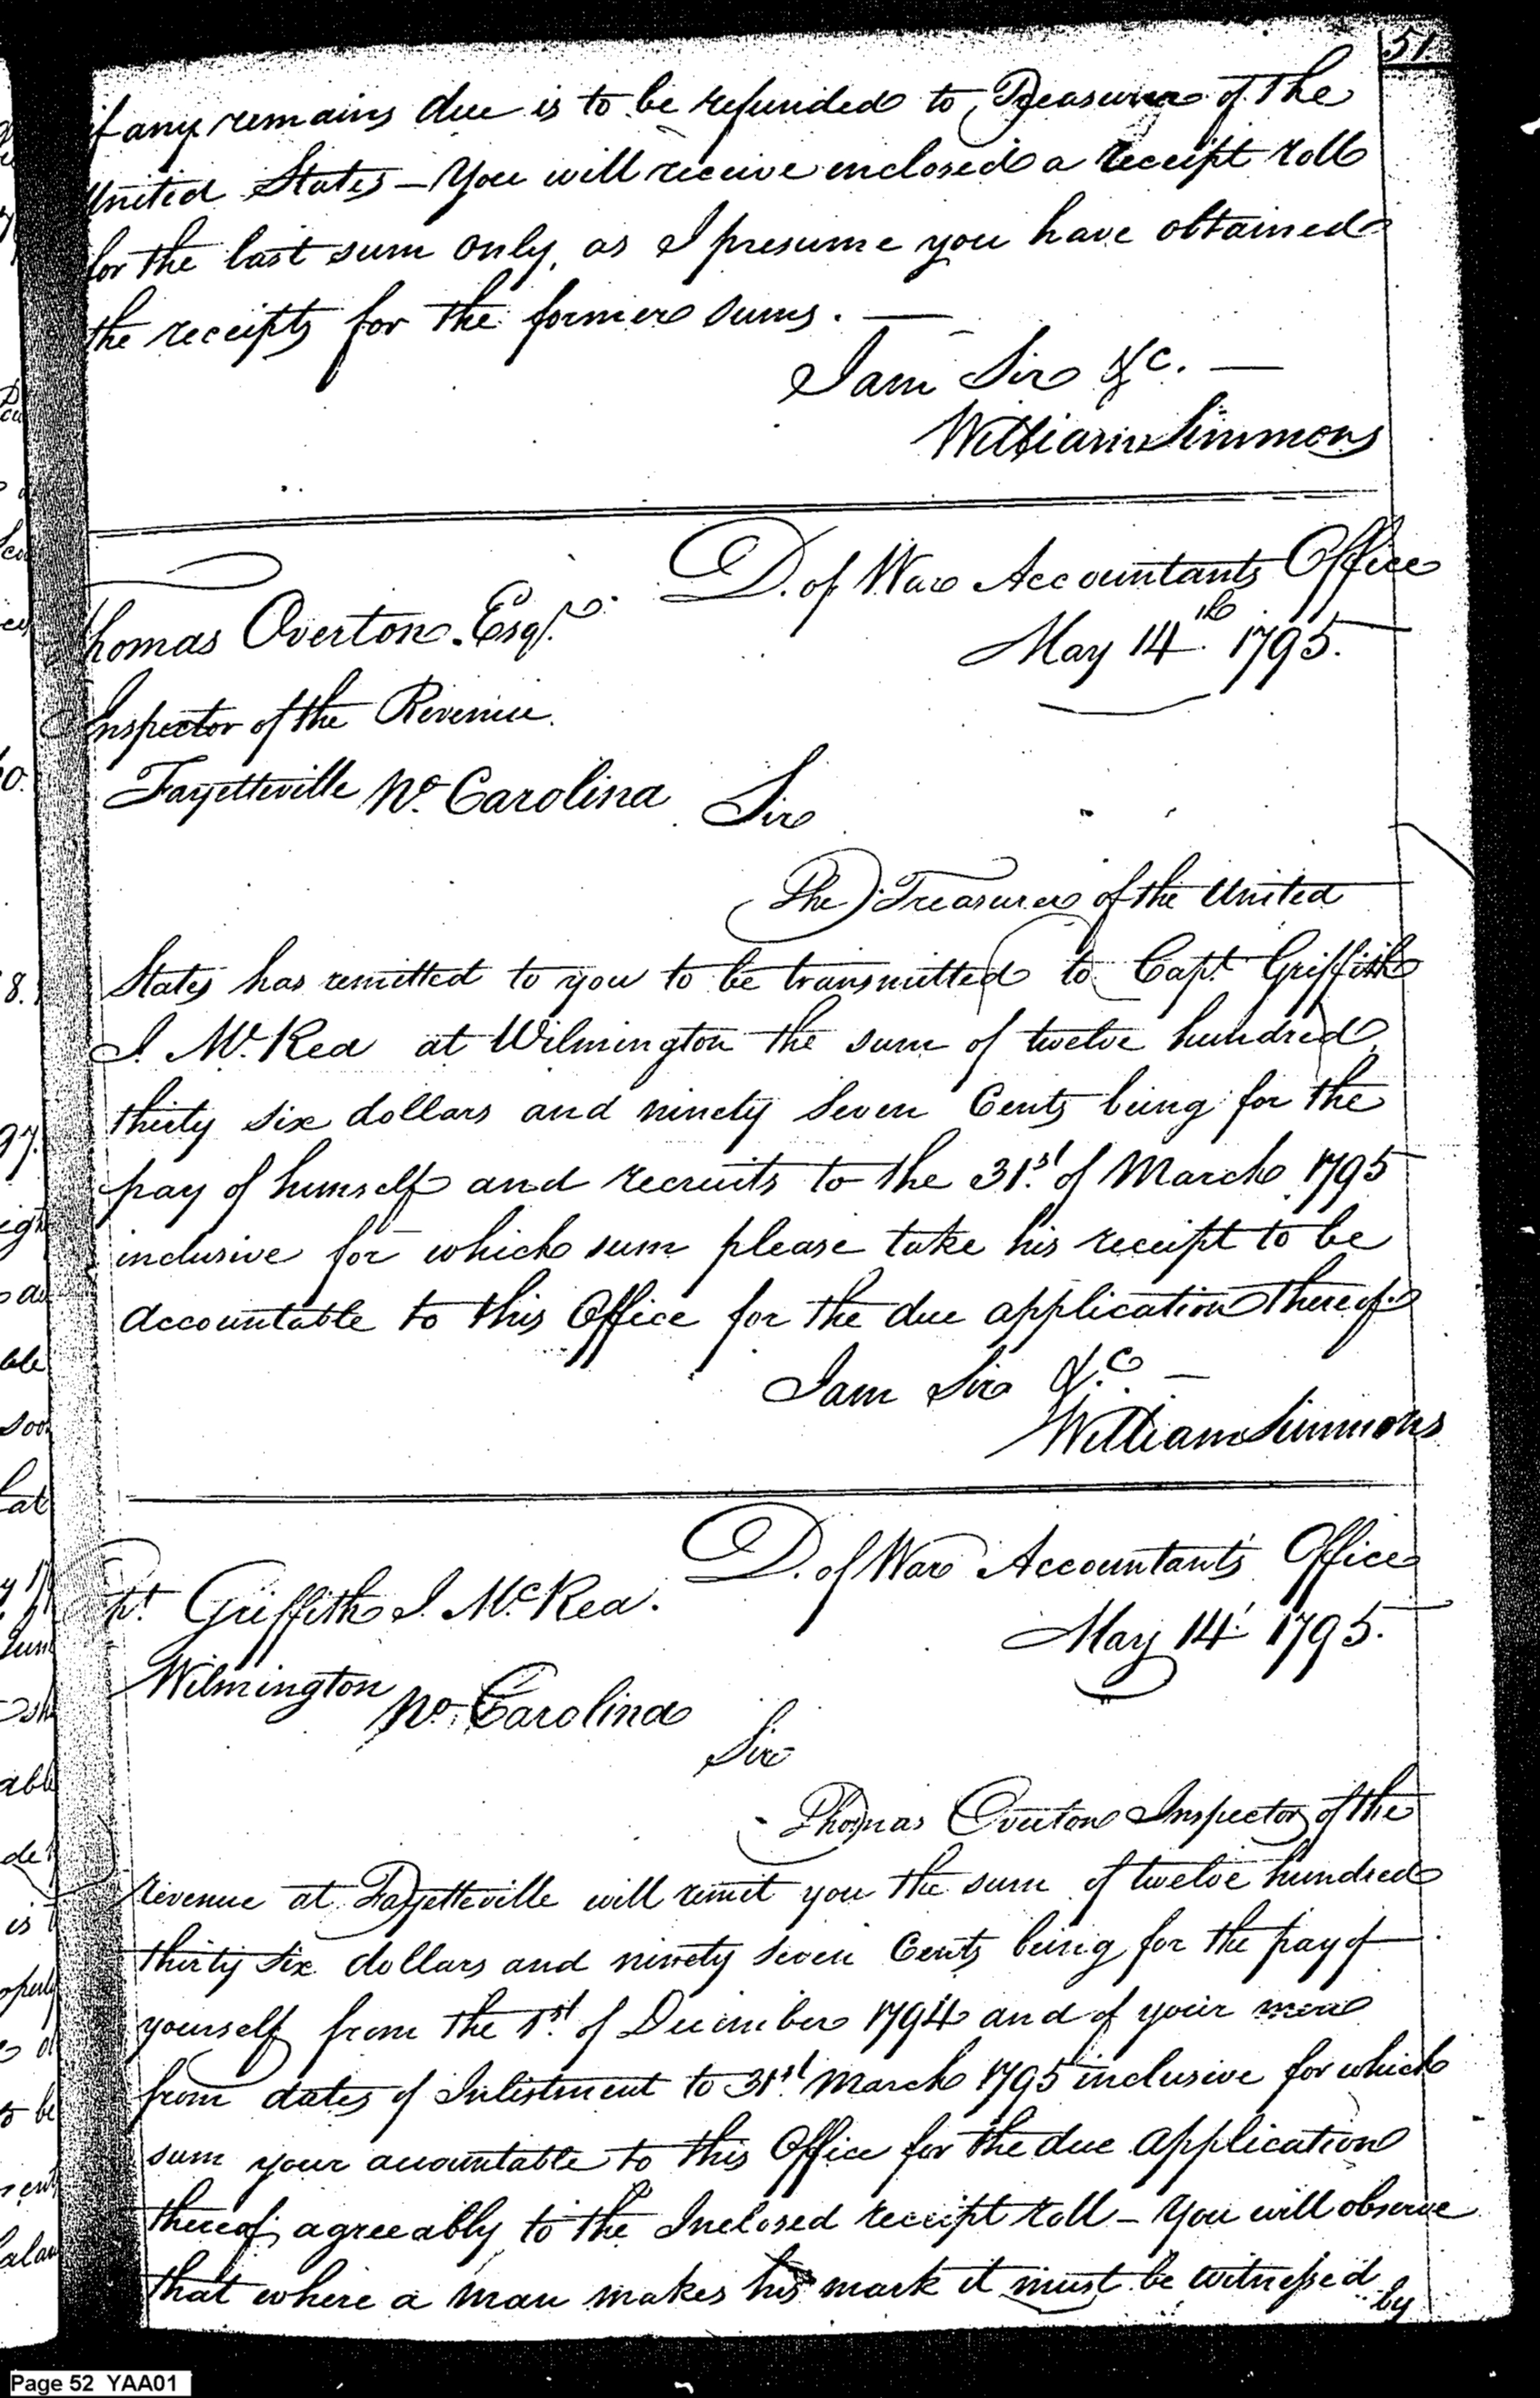 51.
if any remains due is to be refunded to Treasurer of the
United States – You will receive enclosed a receipt roll
for the last sum only, as I presume you have obtained
the receipts for the former sums. —
I am Sir &c. —
William Simmons
D. of War Accountants Office
May 14th 1795.
Thomas Overton Esqr.
Inspector of the Revenue.
Fayetteville No. Carolina
Sir
The Treasurer of the United
States has remitted to you to be transmitted to Capt. Griffith
J. McRea at Wilmington the sum of twelve hundred
thirty six dollars and ninety seven Cents being for the
pay of himself and recruits to the 31st. of March 1795
inclusive for which sum please take his receipt to be
accountable to this Office for the due application thereof.
I am Sir &c. —
William Simmons
D. of War Accountants Office
May 14. 1795.
Capt. Griffith J. McRea.
Wilmington
No. Carolina
Sir
Thomas Overton Inspector of the
revenue at Fayetteville will remit you the sum of twelve hundred
thirty six dollars and ninety seven Cents being for the pay of
yourself from the 1st. of December 1794 and of your men
from dates of Inlistment to 31st. March 1795 inclusive for which
sum your accountable to this Office for the due application
thereof agreeably to the Inclosed receipt roll – You will observe
that where a man makes his mark it must be witnessed
by
Page 52 YAA01